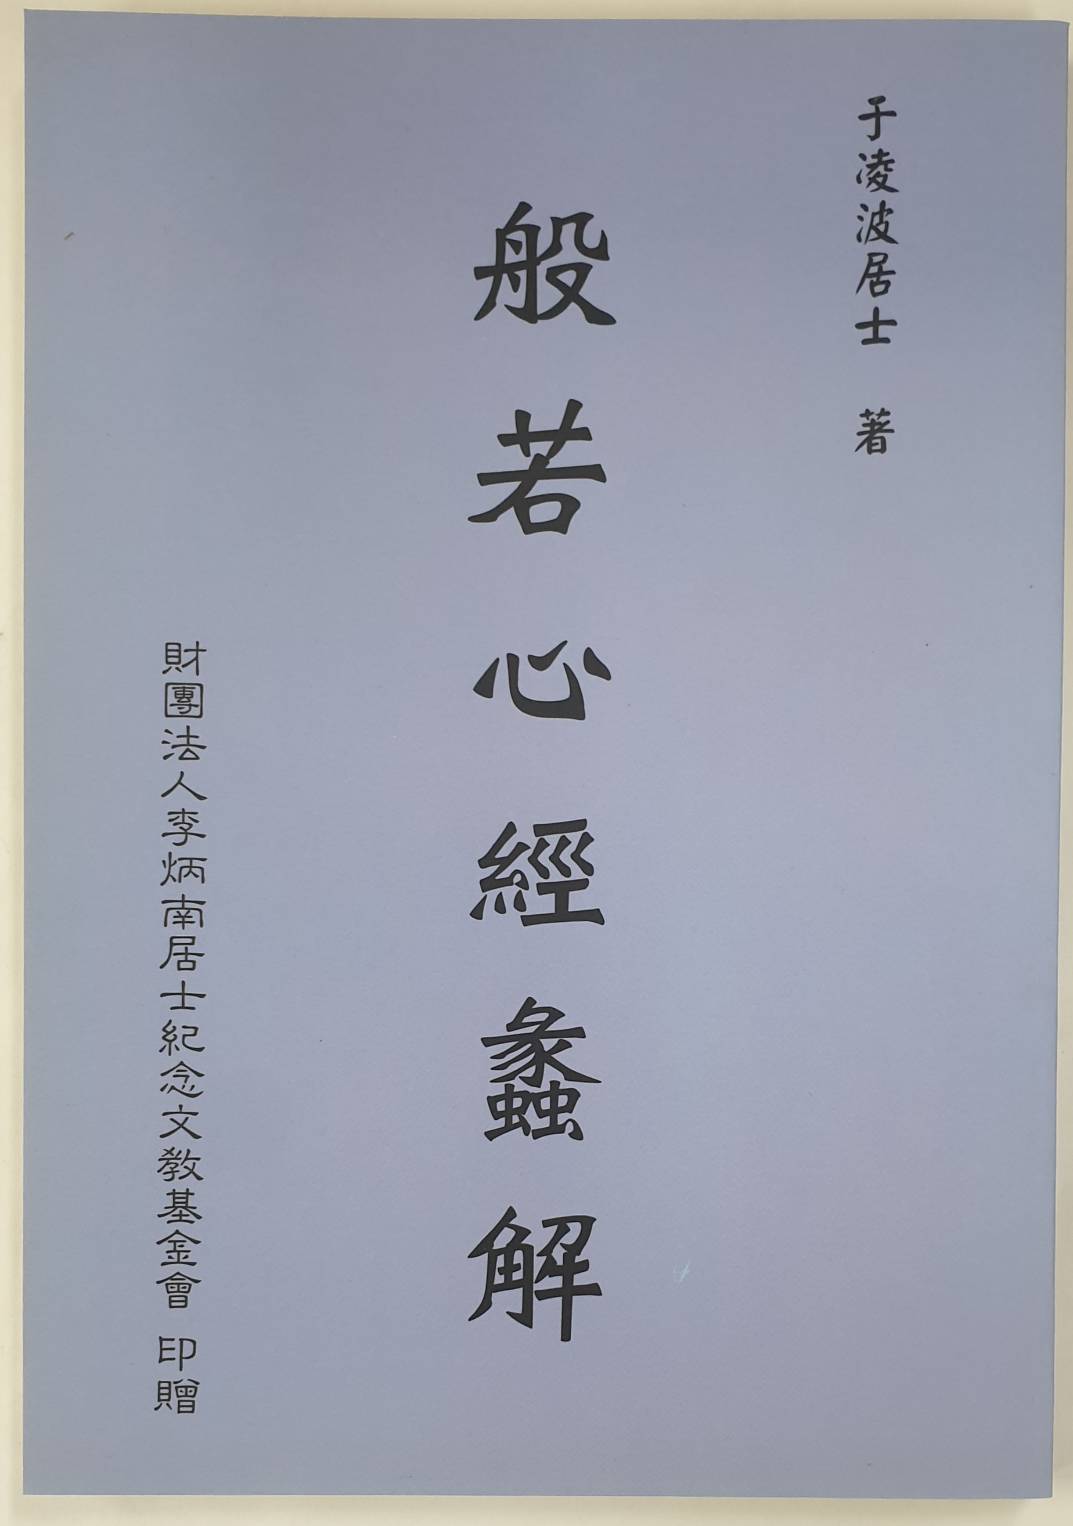 于凌波居士 著
般若心經蠡解
財團法人李炳南居士紀念文教基金會 印贈